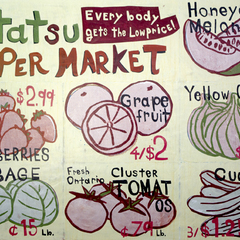 tatsu
PER MARKET
Every body
gets the Lowprice!
Honeyd
Melon
$2.99
Grape
fruit
4/$2
Yellow O
BERRIES
BAGE
¢15 Lb.
Fresh
Ontario
Cluster
TOMAT
OS
¢79 Lb.
Cu
3/$1.2